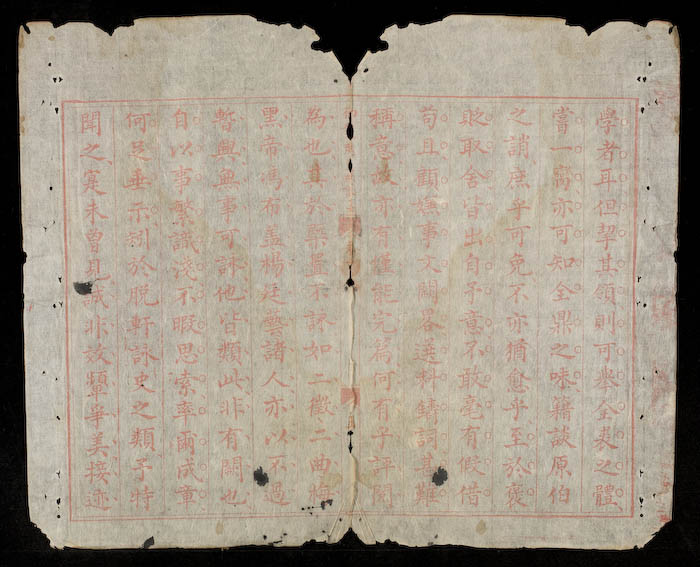 學者耳但挈其領則可舉全裘之體
嘗一臠亦可知全鼎之味籍談原伯
之誚庶乎可免不亦猶愈乎至於褒
貶取舍皆出自予意不敢毫有假借
苟且顧事文闊畧選料鑄詞甚難
稱意故亦有僅能完篇何有予評閱
為也其於槩置不詠如二徵二曲梅
黑帝馮布蓋楊廷藝諸人亦以不過
暫興無事可詠他皆類此非有闕也
自以事繁識淺不暇思索率爾成章
何足垂示矧於脫軒詠史之類予特
聞之寔未曾見誠非效顰寧美接迹